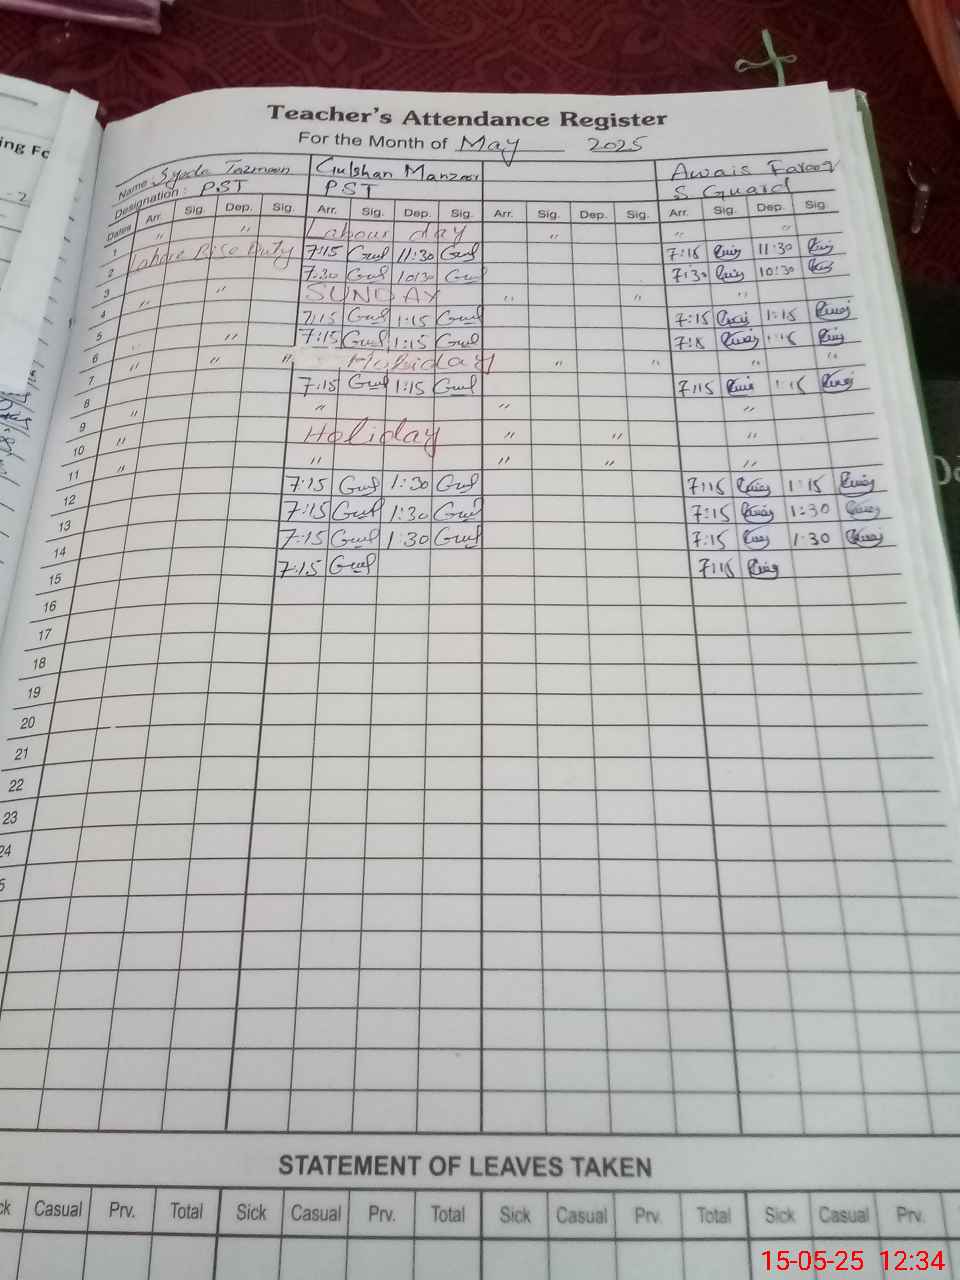 Teacher's Attendance Register
For the Month of May 2025
Name: Syeda Gulshan Manzoor Awais Farooq
Designation: PST PST S Guard
Dates Arr. Sig. Dep. Sig. Arr. Sig. Dep. Sig. Arr. Sig. Dep. Sig. Arr. Sig. Dep. Sig.
1 " " Labour day " " "
2 Duty 7:15 Gul 11:30 Gul 7:15 11:30
3 7:30 Gul 10:30 Gul 7:30 10:30
4 " " SUNDAY " " "
5 7:15 Gul 1:15 Gul 7:15 1:15
6 " " 7:15 Gul 1:15 Gul 1:15
7 " " " Holiday " " " "
8 7:15 Gul 1:15 Gul 7:15 1:15
9 " " " "
10 " Holiday " " "
11 " " " " "
12 7:15 Gul 1:30 Gul 7:15 1:15
13 7:15 Gul 1:30 Gul 7:15 1:30
14 7:15 Gul 1:30 Gul 7:15 1:30
15 7:15 Gul 7:15
16
17
18
19
20
21
22
23
24
5
STATEMENT OF LEAVES TAKEN
ck Casual Prv. Total Sick Casual Prv. Total Sick Casual Prv. Total Sick Casual Prv.
15-05-25 12:34
ing Fo